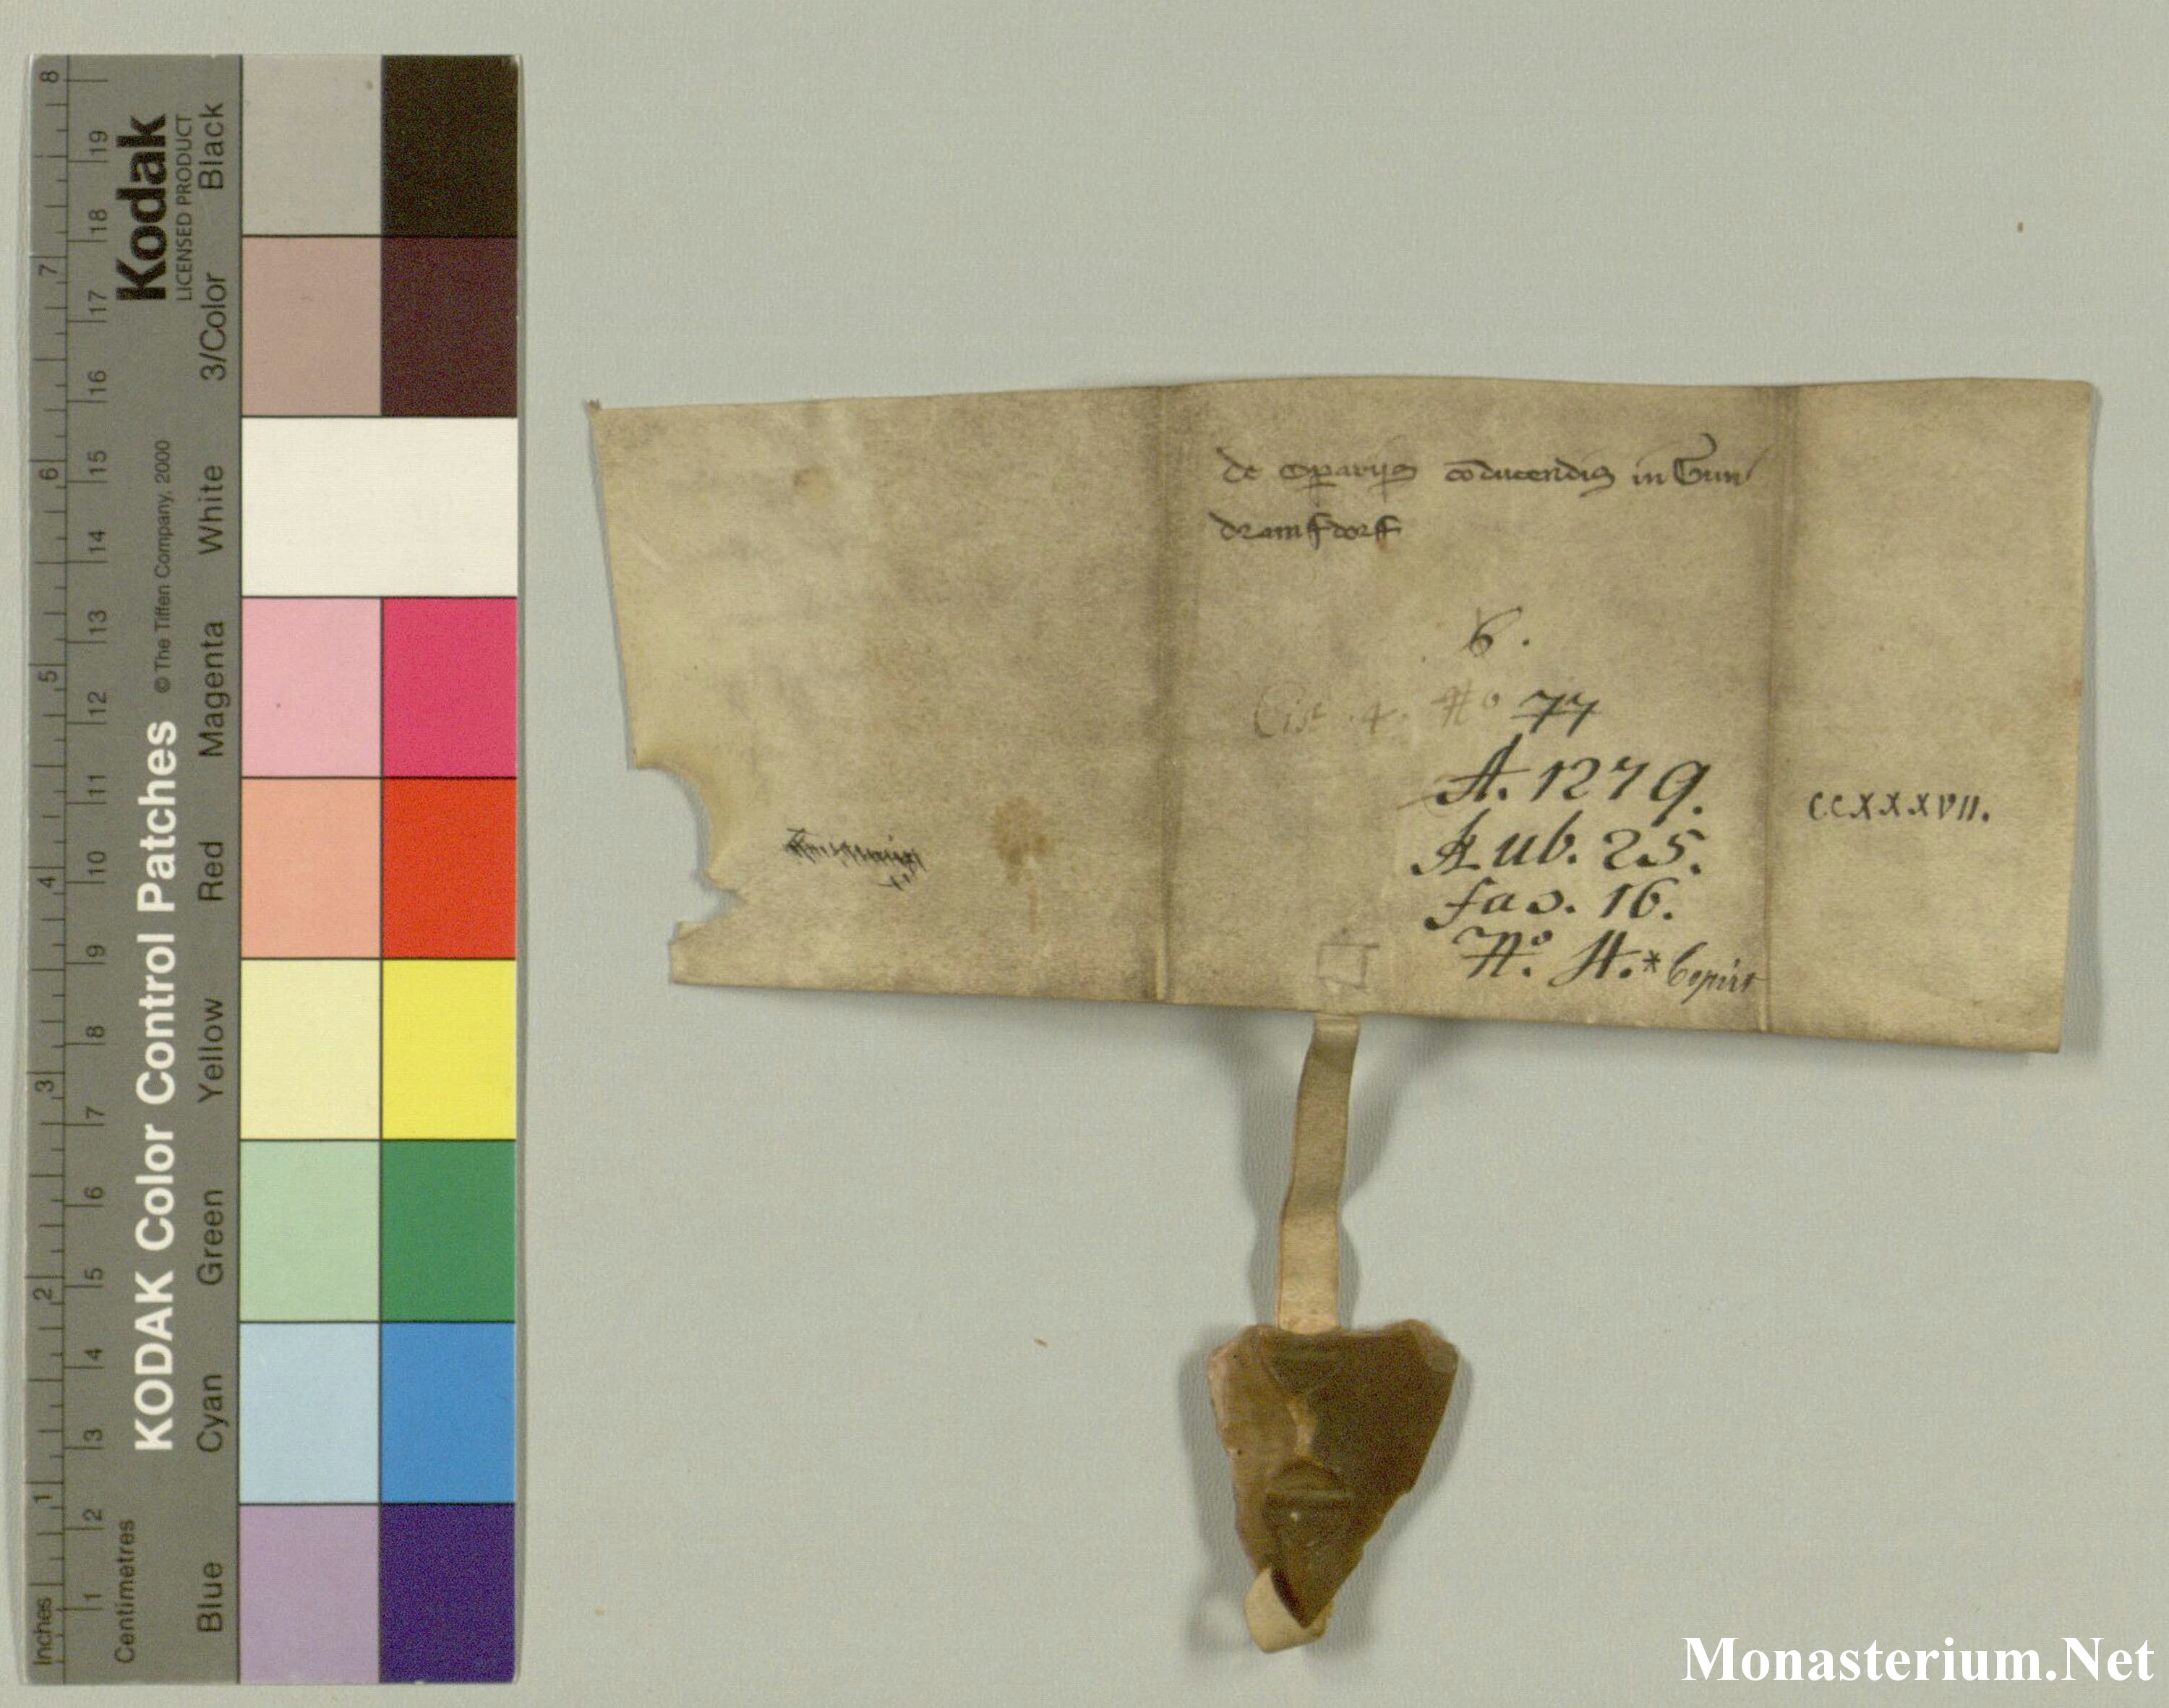 8
7
6
5
4
3
2
1
Inches
19
18
17
16
15
14
13
12
11
10
9
8
7
6
5
4
3
2
1
Centimetres
Kodak
LICENSED PRODUCT
KODAK Color Control Patches © The Tiffen Company, 2000
Blue Cyan Green Yellow Red Magenta White 3/Color Black
de oparijs co̅ducendis in Gun
dramsdorff
6.
Cist. 4. No 77
A. 1279.
Rub. 25.
fas. 16.
No. A.* Copirt
CCXXXVII.
Monasterium.Net